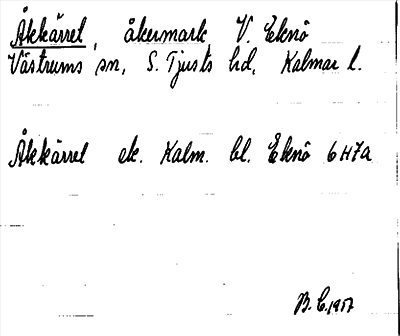 Åkkärret, åkermark V. Eknö
Västrums sn, S. Tjusts hd, Kalmar l.
Åkkärret ek. Kalm. bl. Eknö 6H7a
B.E. 1957